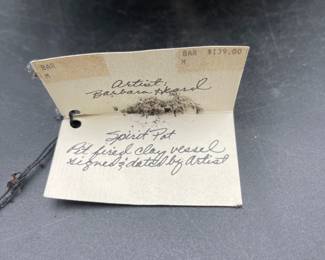 BAR
M
BAR $139.00
M
Artist:
Barbara Heard
Spirit Pot
Pit fired clay vessel
signed & dated by Artist